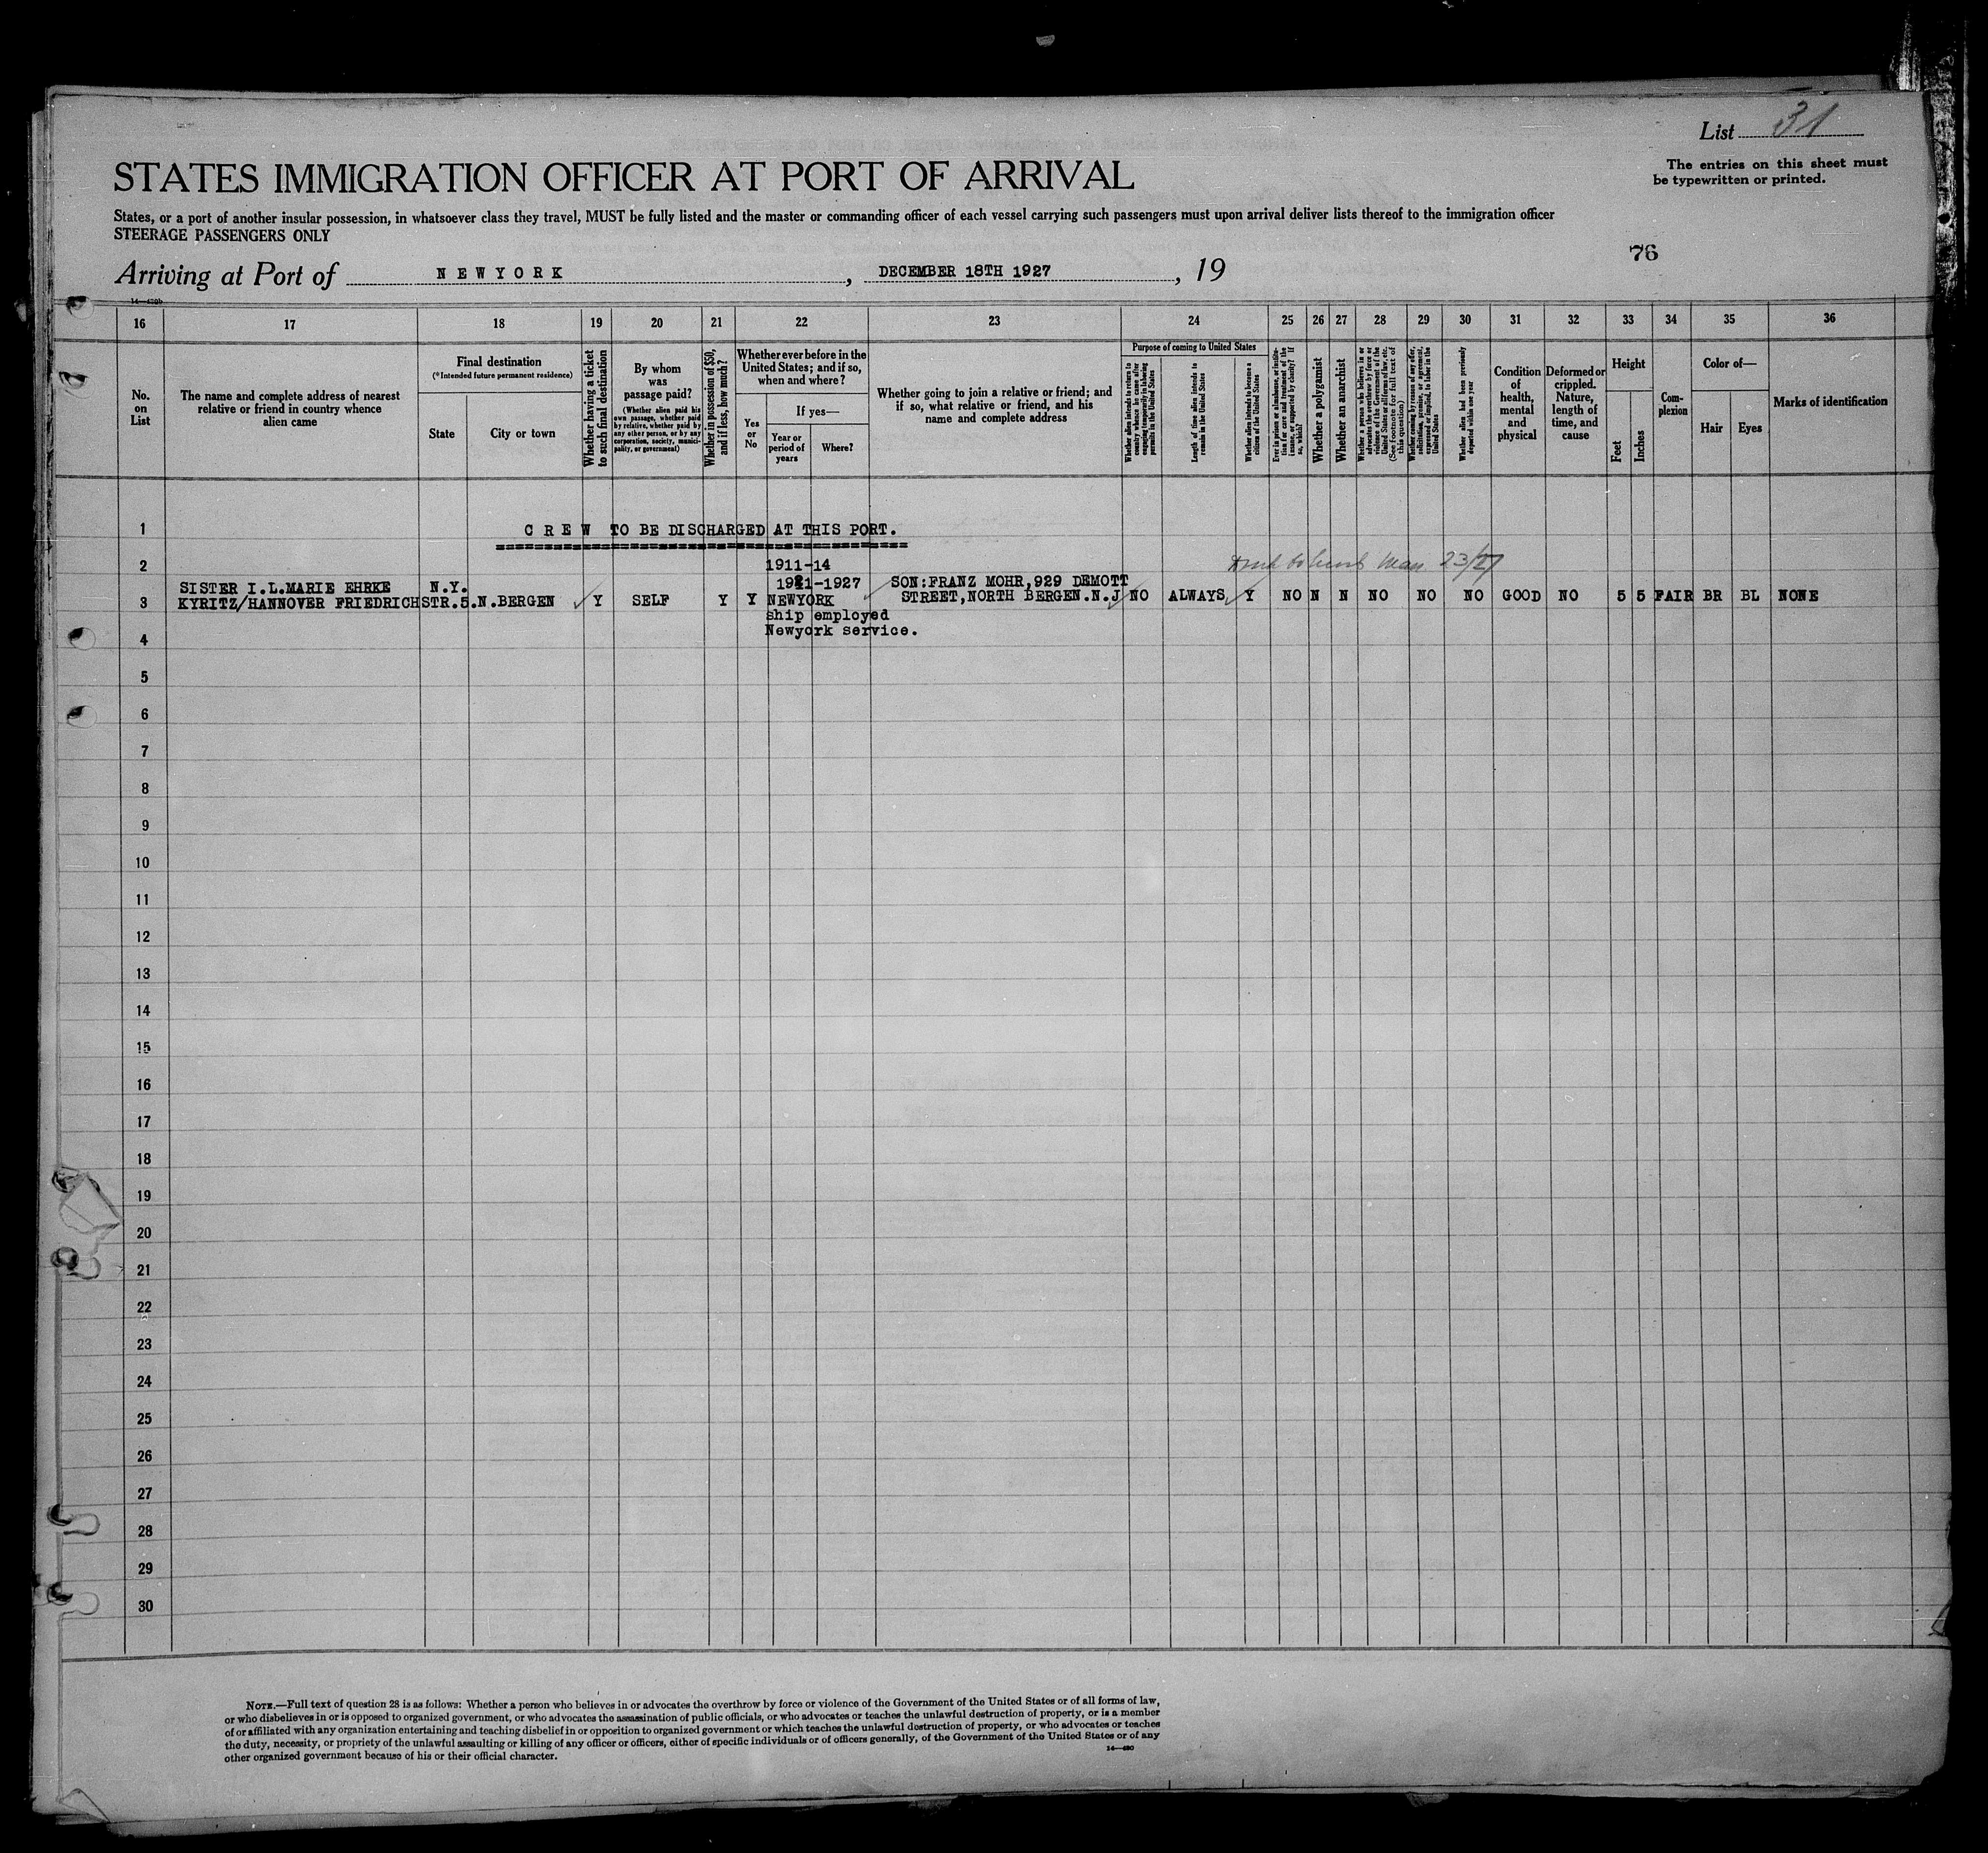 List 31
The entries on this sheet must
be typewritten or printed.
STATES IMMIGRATION OFFICER AT PORT OF ARRIVAL
States, or a port of another insular possession, in whatsoever class they travel, MUST be fully listed and the master or commanding officer of each vessel carrying such passengers must upon arrival deliver lists thereof to the immigration officer
STEERAGE PASSENGERS ONLY
76
Arriving at Port of NEWYORK, DECEMBER 18TH 1927, 19
16 17 18 19 20 21 22 23 24 25 26 27 28 29 30 31 32 33 34 35 36
No.
on
List
The name and complete address of nearest
relative or friend in country whence
alien came
Final destination
(*Intended future permanent residence)
State
City or town
Whether having a ticket
to such final destination
By whom
was
passage paid?
(Whether alien paid his
own passage, whether paid
by relative, whether paid by
any other person, or by any
corporation, society, munici-
pality, or government)
Whether in possession of $50,
and if less, how much?
Whether ever before in the
United States; and if so,
when and where?
Yes
or
No
If yes—
Year or
period of
years
Where?
Whether going to join a relative or friend; and
if so, what relative or friend, and his
name and complete address
Purpose of coming to United States
Whether alien intends to return to
country whence he came after
engaging temporarily in laboring
pursuits in the United States
Length of time alien intends to
remain in the United States
Whether alien intends to become a
citizen of the United States
Ever in prison or almshouse, or institu-
tion for care and treatment of the
insane, or supported by charity? If
so, which?
Whether a polygamist
Whether an anarchist
Whether a person who believes in or
advocates the overthrow by force or
violence of the Government of the
United States or all forms of law, etc.
(See footnote for full text of
this question)
Whether coming by reason of any offer,
solicitation, promise, or agreement,
expressed or implied, to labor in the
United States
Whether alien had been previously
deported within one year
Condition
of
health,
mental
and
physical
Deformed or
crippled.
Nature,
length of
time, and
cause
Height
Feet
Inches
Com-
plexion
Color of—
Hair
Eyes
Marks of identification
1 CREW TO BE DISCHARGED AT THIS PORT.
2 1911-14 23/27
SISTER I.L.MARIE EHRKE N.Y. 1921-1927 SON:FRANZ MOHR,929 DEMOTT
3 KYRITZ/HANNOVER FRIEDRICHSTR.5.N.BERGEN Y SELF Y Y NEWYORK STREET,NORTH BERGEN.N.J NO ALWAYS Y NO N N NO NO NO GOOD NO 5 5 FAIR BR BL NONE
ship employed
4 Newyork service.
5
6
7
8
9
10
11
12
13
14
15
16
17
18
19
20
21
22
23
24
25
26
27
28
29
30
NOTE.—Full text of question 28 is as follows: Whether a person who believes in or advocates the overthrow by force or violence of the Government of the United States or of all forms of law,
or who disbelieves in or is opposed to organized government, or who advocates the assassination of public officials, or who advocates or teaches the unlawful destruction of property, or is a member
of or affiliated with any organization entertaining and teaching disbelief in or opposition to organized government or which teaches the unlawful destruction of property, or who advocates or teaches
the duty, necessity, or propriety of the unlawful assaulting or killing of any officer or officers, either of specific individuals or of officers generally, of the Government of the United States or of any
other organized government because of his or their official character.
14—430